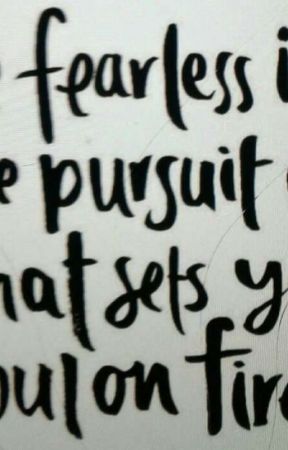 e fearless i
e pursuit
hat sets y
oul on fire